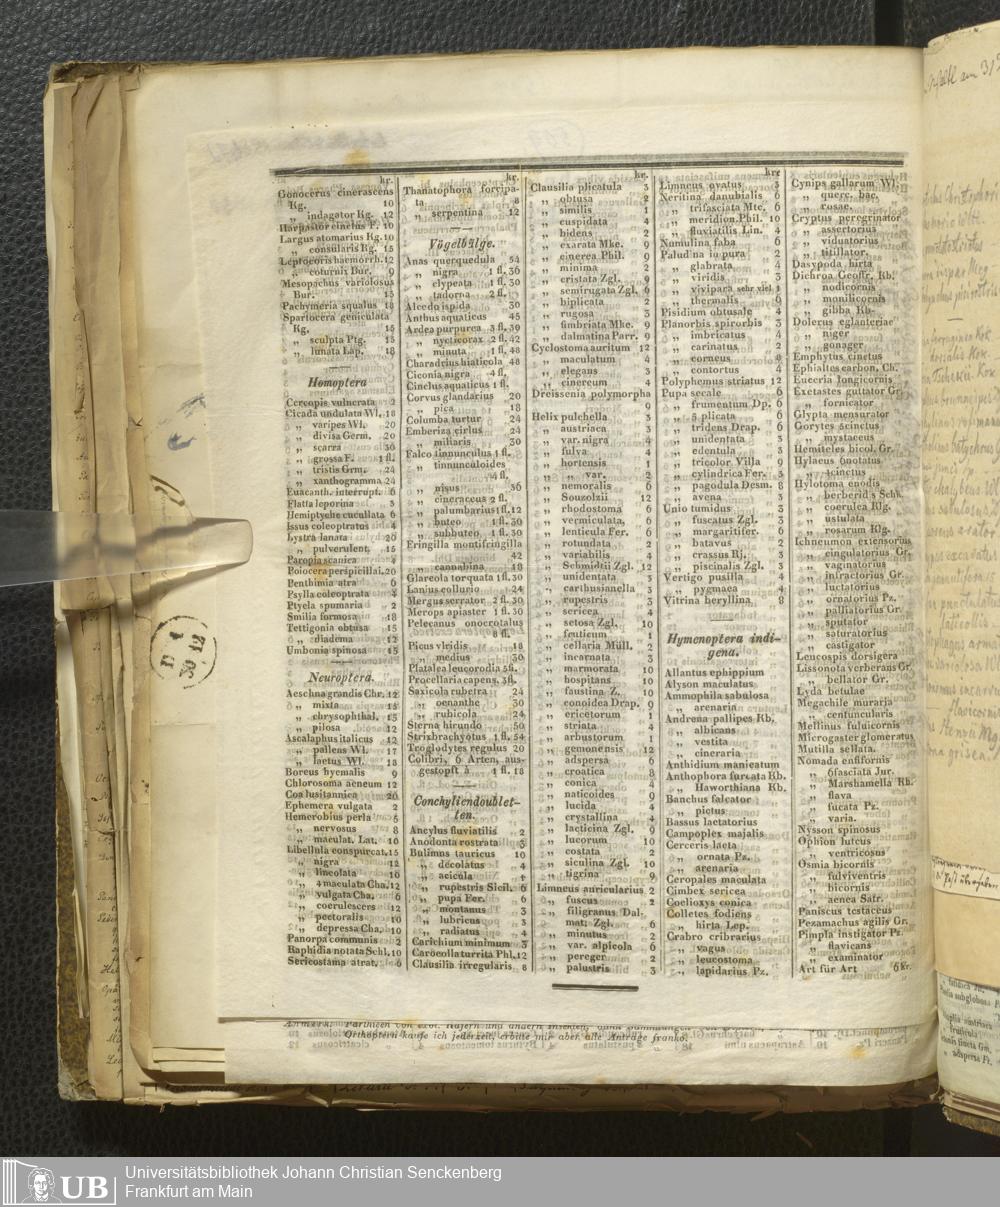 kr.
Gonocerus cinerascens
Kg. 10
„ indagator Kg. 12
Harpastor cinctus F. 10
Largus atomarius Kg. 10
„ consularis Kg. 15
Leptocoris haemorrh. 12
„ coturnix Bur. 9
Mesopachus variolosus
Bur. 13
Pachymeria squalus 18
Spartocera geniculata
Kg. 15
„ sculpta Ptg. 15
„ lunata Lap. 18
Homoptera
Cercopis vulnerata 2
Cicada undulata Wl. 18
„ varipes Wl. 20
„ divisa Germ. 20
„ scarra 36
„ grossa F. 1 fl.
„ tristis Grm. 24
„ xanthogramma 24
Euacanth. interrupt. 6
Flatta leporina 3
Hemiptyche cucullata 6
Issus coleoptratus 4
Lystra lanata 20
„ pulverulent. 15
Paropia scanica 4
Poiocera perspicillai. 20
Penthimia atra 6
Psylla coleoptrata 4
Ptyela spumaria 2
Smilia formosa 18
Tettigonia obtusa 15
„ diadema 12
Umbonia spinosa 15
Neuroptera.
Aeschna grandis Chr. 12
„ mixta 15
„ chrysophthal. 15
„ pilosa 12
Ascalaphus italicus 12
„ pallens Wl. 17
„ laetus Wl. 18
Boreus hyemalis 9
Chlorosoma aeneum 12
Coa lusitannica 26
Ephemera vulgata 2
Hemerobius perla 5
„ nervosus 8
„ maculat. Lat. 10
Libellula conspurcat. 15
„ nigra 12
„ lineolata 10
„ 4maculata Cha. 12
„ vulgata Cha. 6
„ coerulescens 12
„ pectoralis 10
„ depressa Cha. 10
Panorpa communis 2
Raphidia notata Schl. 10
Sericostama atrat. 6
kr.
Thanatophora forcipa-
ta 8
„ serpentina 12
Vögelbälge.
Anas querquedula 54
„ nigra 1 fl. 36
„ clypeata 1 fl. 30
„ tadorna 2 fl.
Alcedo ispida 30
Anthus aquaticus 45
Ardea purpurea 3 fl. 39
„ nycticorax 2 fl. 42
„ minuta 1 fl. 48
Charadrius hiaticola 48
Ciconia nigra 4 fl.
Cinclus aquaticus 1 fl.
Corvus glandarius 20
„ pica 18
Columba turtur 24
Emberiza cirlus 24
„ miliaris 30
Falco tinnunculus 1 fl.
„ tinnunculoides
4 fl.
„ nisus 36
„ cineraceus 2 fl.
„ palumbarius 1 fl. 12
„ buteo 1 fl. 30
„ subbuteo 1 fl. 30
Fringilla montifringilla
42
„ cannabina 18
Glareola torquata 1 fl. 30
Lanius collurio 24
Mergus serrator 2 fl. 30
Merops apiaster 1 fl. 30
Pelecanus onocrotalus
8 fl.
Picus viridis 18
„ medius 30
Platalea leucorodia 5 fl.
Procellaria capens. 3 fl.
Saxicola rubetra 24
„ oenanthe 30
„ rubicola 24
Sterna hirundo 50
Strix brachyotus 1 fl. 54
Troglodytes regulus 20
Colibri, 6 Arten, aus-
gestopft à 4 fl. 18
Conchyliendoublet-
ten.
Ancylus fluviatilis 2
Anodonta rostrata 3
Bulimus tauricus 10
„ decolatus 4
„ acicula 1
„ rupestris Sicil. 6
„ pupa Fer. 6
„ montanus 3
„ lubricus 3
„ radiatus 4
Carichium minimum 3
Carocolla turrita Phl. 12
Clausilia irregularis 8
kr.
Clausilia plicatula 3
„ obtusa 2
„ similis 1
„ cuspidata 4
„ bidens 2
„ exarata Mke. 9
„ cinerea Phil. 9
„ minima 2
„ cristata Zgl. 9
„ semirugata Zgl. 6
„ biplicata 2
„ rugosa 3
„ fimbriata Mke. 9
„ dalmatina Parr. 9
Cyclostoma auritum 12
„ maculatum 4
„ elegans 3
„ cinereum 4
Dreissenia polymorpha
9
Helix pulchella 3
„ austriaca 3
„ var. nigra 4
„ fulva 4
„ hortensis 1
„ „ var. 2
„ nemoralis 6
„ Souzolzii 12
„ rhodostoma 6
„ vermiculata. 6
„ lenticula Fer. 6
„ rotundata 2
„ variabilis 4
„ Schmidtii Zgl. 12
„ unidentata 3
„ carthusianella 3
„ rupestris 3
„ sericea 4
„ setosa Zgl. 10
„ fruticum 1
„ cellaria Müll. 2
„ incarnata 3
„ marmorata 10
„ hospitans 10
„ faustina Z. 10
„ conoidea Drap. 9
„ ericetorum 1
„ striata 4
„ arbustorum 1
„ gemonensis 12
„ adspersa 6
„ croatica 8
„ conica 4
„ naticoides 9
„ lucida 4
„ crystallina 4
„ lacticina Zgl. 9
„ lucorum 10
„ costata 2
„ siculina Zgl. 10
„ tigrina 9
Limneus auricularius 2
„ fuscus 2
„ filigranus Dal-
mat. Zgl. 6
„ minutus 2
„ var. alpicola 6
„ pereger 2
„ palustris 3
kr.
Limneus ovatus 3
Neritina danubialis 6
„ trifasciata Mte. 6
„ meridion. Phil. 10
„ fluviatilis Lin. 4
Numulina faba 6
Paludina impura 2
„ glabrata 4
„ viridis 3
„ vivipara sehr viel 1
„ thermalis 6
Pisidium obtusale 4
Planorbis spirorbis 3
„ imbricatus 4
„ carinatus 2
„ corneus 8
„ contortus 4
Polyphemus striatus 12
Pupa secale 6
„ frumentum Dp. 6
„ 5 plicata 6
„ tridens Drap. 6
„ unidentata 3
„ edentula 3
„ tricolor Villa 9
„ cylindrica Fer. 3
„ pagodula Desm. 8
„ avena 3
Unio tumidus 3
„ fuscatus Zgl. 3
„ margaritifer. 6
„ batavus 2
„ crassus Rj. 3
„ piscinalis Zgl. 3
Vertigo pusilla 4
„ pygmaea 4
Vitrina beryllina 8
Hymenoptera indi-
gena.
Allantus ephippium
Alyson maculatus
Ammophila sabulosa
„ arenaria
Andrena pallipes Kb.
„ albicans
„ vestita
„ cineraria
Anthidium manicatum
Anthophora furcata Kb.
„ Haworthiana Kb.
Banchus falcator
„ pictus
Bassus laetatorius
Campoplex majalis
Cerceris laeta
„ ornata Pz.
„ arenaria
Ceropales maculata
Cimbex sericea
Coelioxys conica
Colletes fodiens
„ hirta Lep.
Crabro cribrarius
„ vagus
„ leucostoma
„ lapidarius Pz.
Cynips gallarum Wl.
„ querc. bac.
„ rosae.
Cryptus peregrinator
„ assertorius
„ viduatorius
„ titillator.
Dasypoda hirta
Dichroa Geoffr. Kb.
„ nodicornis
„ monilicornis
„ gibba Kb.
Dolerus eglanteriae
„ niger
„ gonager
Emphytus cinctus
Ephialtes carbon. Ch.
Euceria longicornis
Exetastes guttator Gr.
„ fornicator
Glypta mensurator
Gorytes 5cinctus
„ mystaceus
Hemiteles bicol. Gr.
Hylaeus 6notatus
„ 4cinctus
Hylotoma enodis
„ berberid s Schk.
„ coerulea Klg.
„ ustulata
„ rosarum Klg.
Ichneumon extensorius
„ cingulatorius Gr.
„ vaginatorius
„ infractorius Gr.
„ luctatorius
„ ornatorius Pz.
„ palliatorius Gr.
„ sputator
„ saturatorius
„ castigator
Leucospis dorsigera
Lissonota verberans Gr.
„ bellator Gr.
Lyda betulae
Megachile muraria
„ centuncularis
Mellinus fulnicornis
Microgaster glomeratus
Mutilla sellata.
Nomada ensifornis
„ 6fasciata Jur.
„ Marshamella Kb.
„ flava
„ fucata Pz.
„ varia.
Nysson spinosus
Ophion luteus
„ ventricosus
Osmia bicornis
„ fulviventris
„ hicornis
„ aenea Satr.
Paniscus testaceus
Pezamachus agilis Gr.
Pimpla instigator Pz.
„ flavicans
„ examinator
Art für Art 6 Kr.
Orthoptern kaufe ich jederzeit, erbitte mir aber alle Anträge franko.
UB
Universitätsbibliothek Johann Christian Senckenberg
Frankfurt am Main